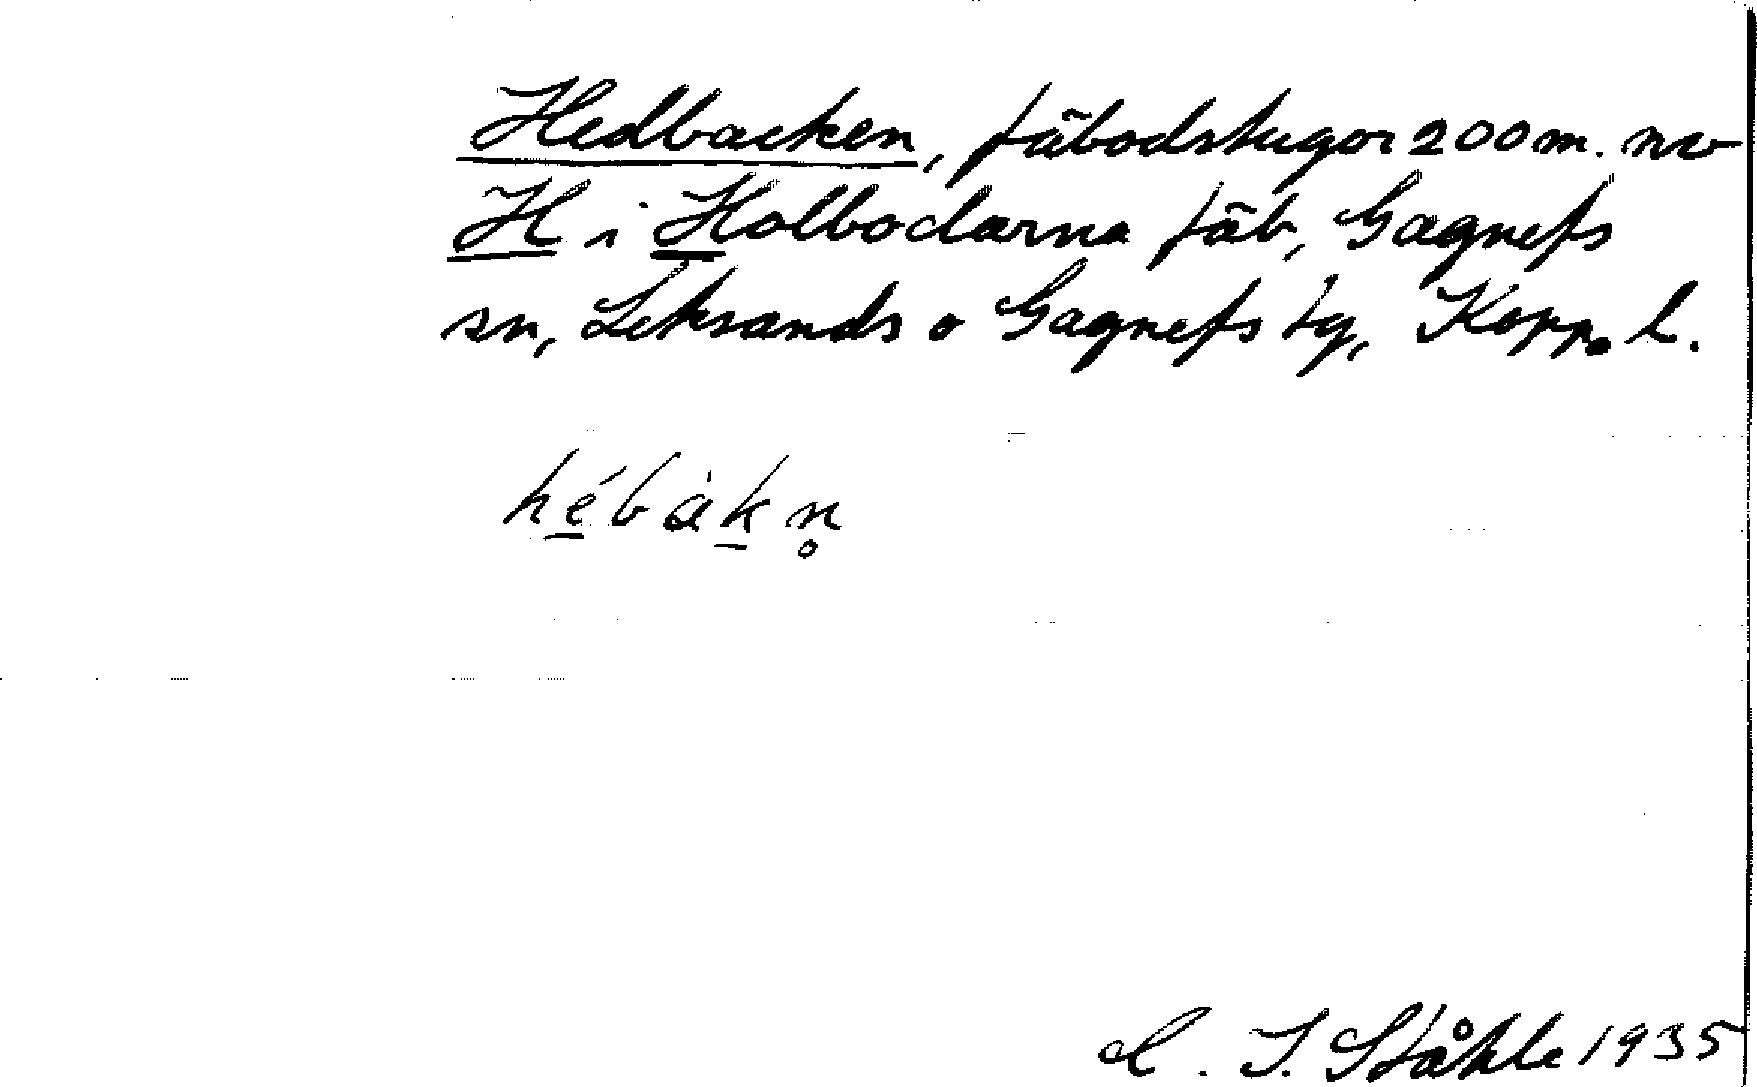 Hedbacken, fäbodstugor 200 m. nv
H i Holbodarna fäb, Gagnefs
sn, Leksands o Gagnefs tg, Kopp. l.
hébàkn̥
C. I. Ståhle 1935